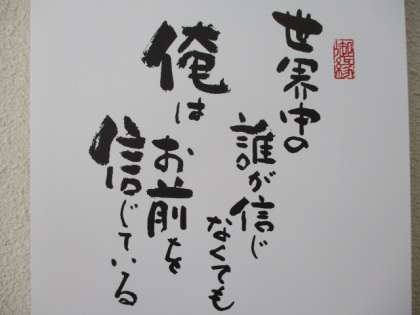 世界中の
誰が信じ
なくても
俺は
お前を
信じている